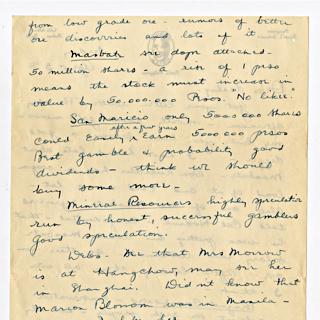 from low grade ore - rumors of better
ore discoveries and lots of it
Masbate see dope attached -
50 million shares - a rise of 1 peso
means the stock must increase in
value by 50.000.000 Pesos. "No likee."
San Maricio only 5000000 shares
after a few years
could easily earn 5000000 pesos
Best gamble & probability good
dividends - think we should
buy some more -
Mineral Resources highly speculative
run by honest, successful gamblers
Good speculation.
Debs - See that Mrs Morrow
is at Hangchow, may see her
in Shanghai. Didn't know that
Marion Blossom was in Manila -